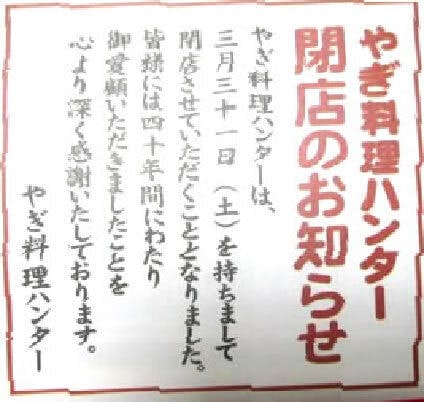 やぎ料理ハンター
閉店のお知らせ
やぎ料理ハンターは、
三月三十一日（土）を持ちまして
閉店させていただくこととなりました。
皆様には四十年間にわたり
御愛願いただきましたことを
心より深く感謝いたしております。
やぎ料理ハンター